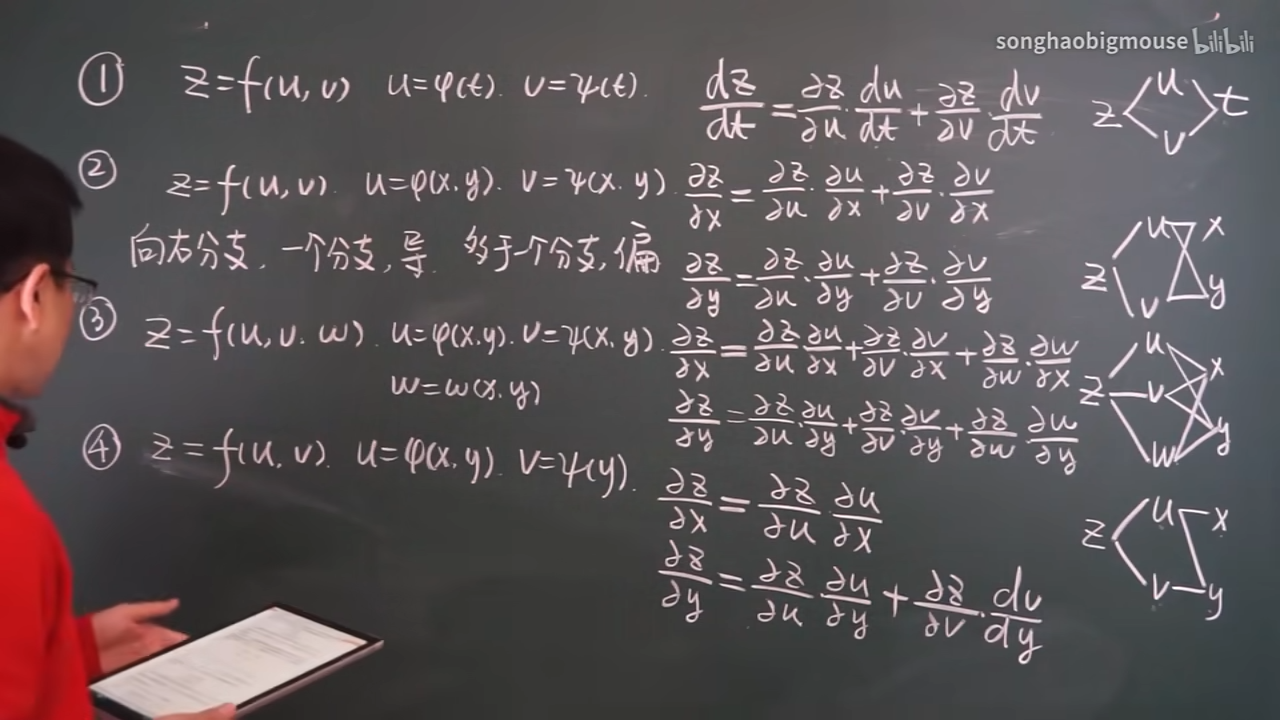 songhaobigmouse bilibili
① z=f(u,v) u=φ(t). v=ψ(t). dz/dt=∂z/∂u·du/dt+∂z/∂v·dv/dt z u v t
② z=f(u,v). u=φ(x,y). v=ψ(x,y). ∂z/∂x=∂z/∂u·∂u/∂x+∂z/∂v·∂v/∂x
向右分支,一个分支,导. 多于一个分支,偏 ∂z/∂y=∂z/∂u·∂u/∂y+∂z/∂v·∂v/∂y z u v x y
③ z=f(u,v.w). u=φ(x,y). v=ψ(x,y). ∂z/∂x=∂z/∂u·∂u/∂x+∂z/∂v·∂v/∂x+∂z/∂w·∂w/∂x z u v w x y
w=w(x,y) ∂z/∂y=∂z/∂u·∂u/∂y+∂z/∂v·∂v/∂y+∂z/∂w·∂w/∂y
④ z=f(u,v). u=φ(x,y). v=ψ(y). ∂z/∂x=∂z/∂u·∂u/∂x z u v x y
∂z/∂y=∂z/∂u ∂u/∂y+∂z/∂v·dv/dy